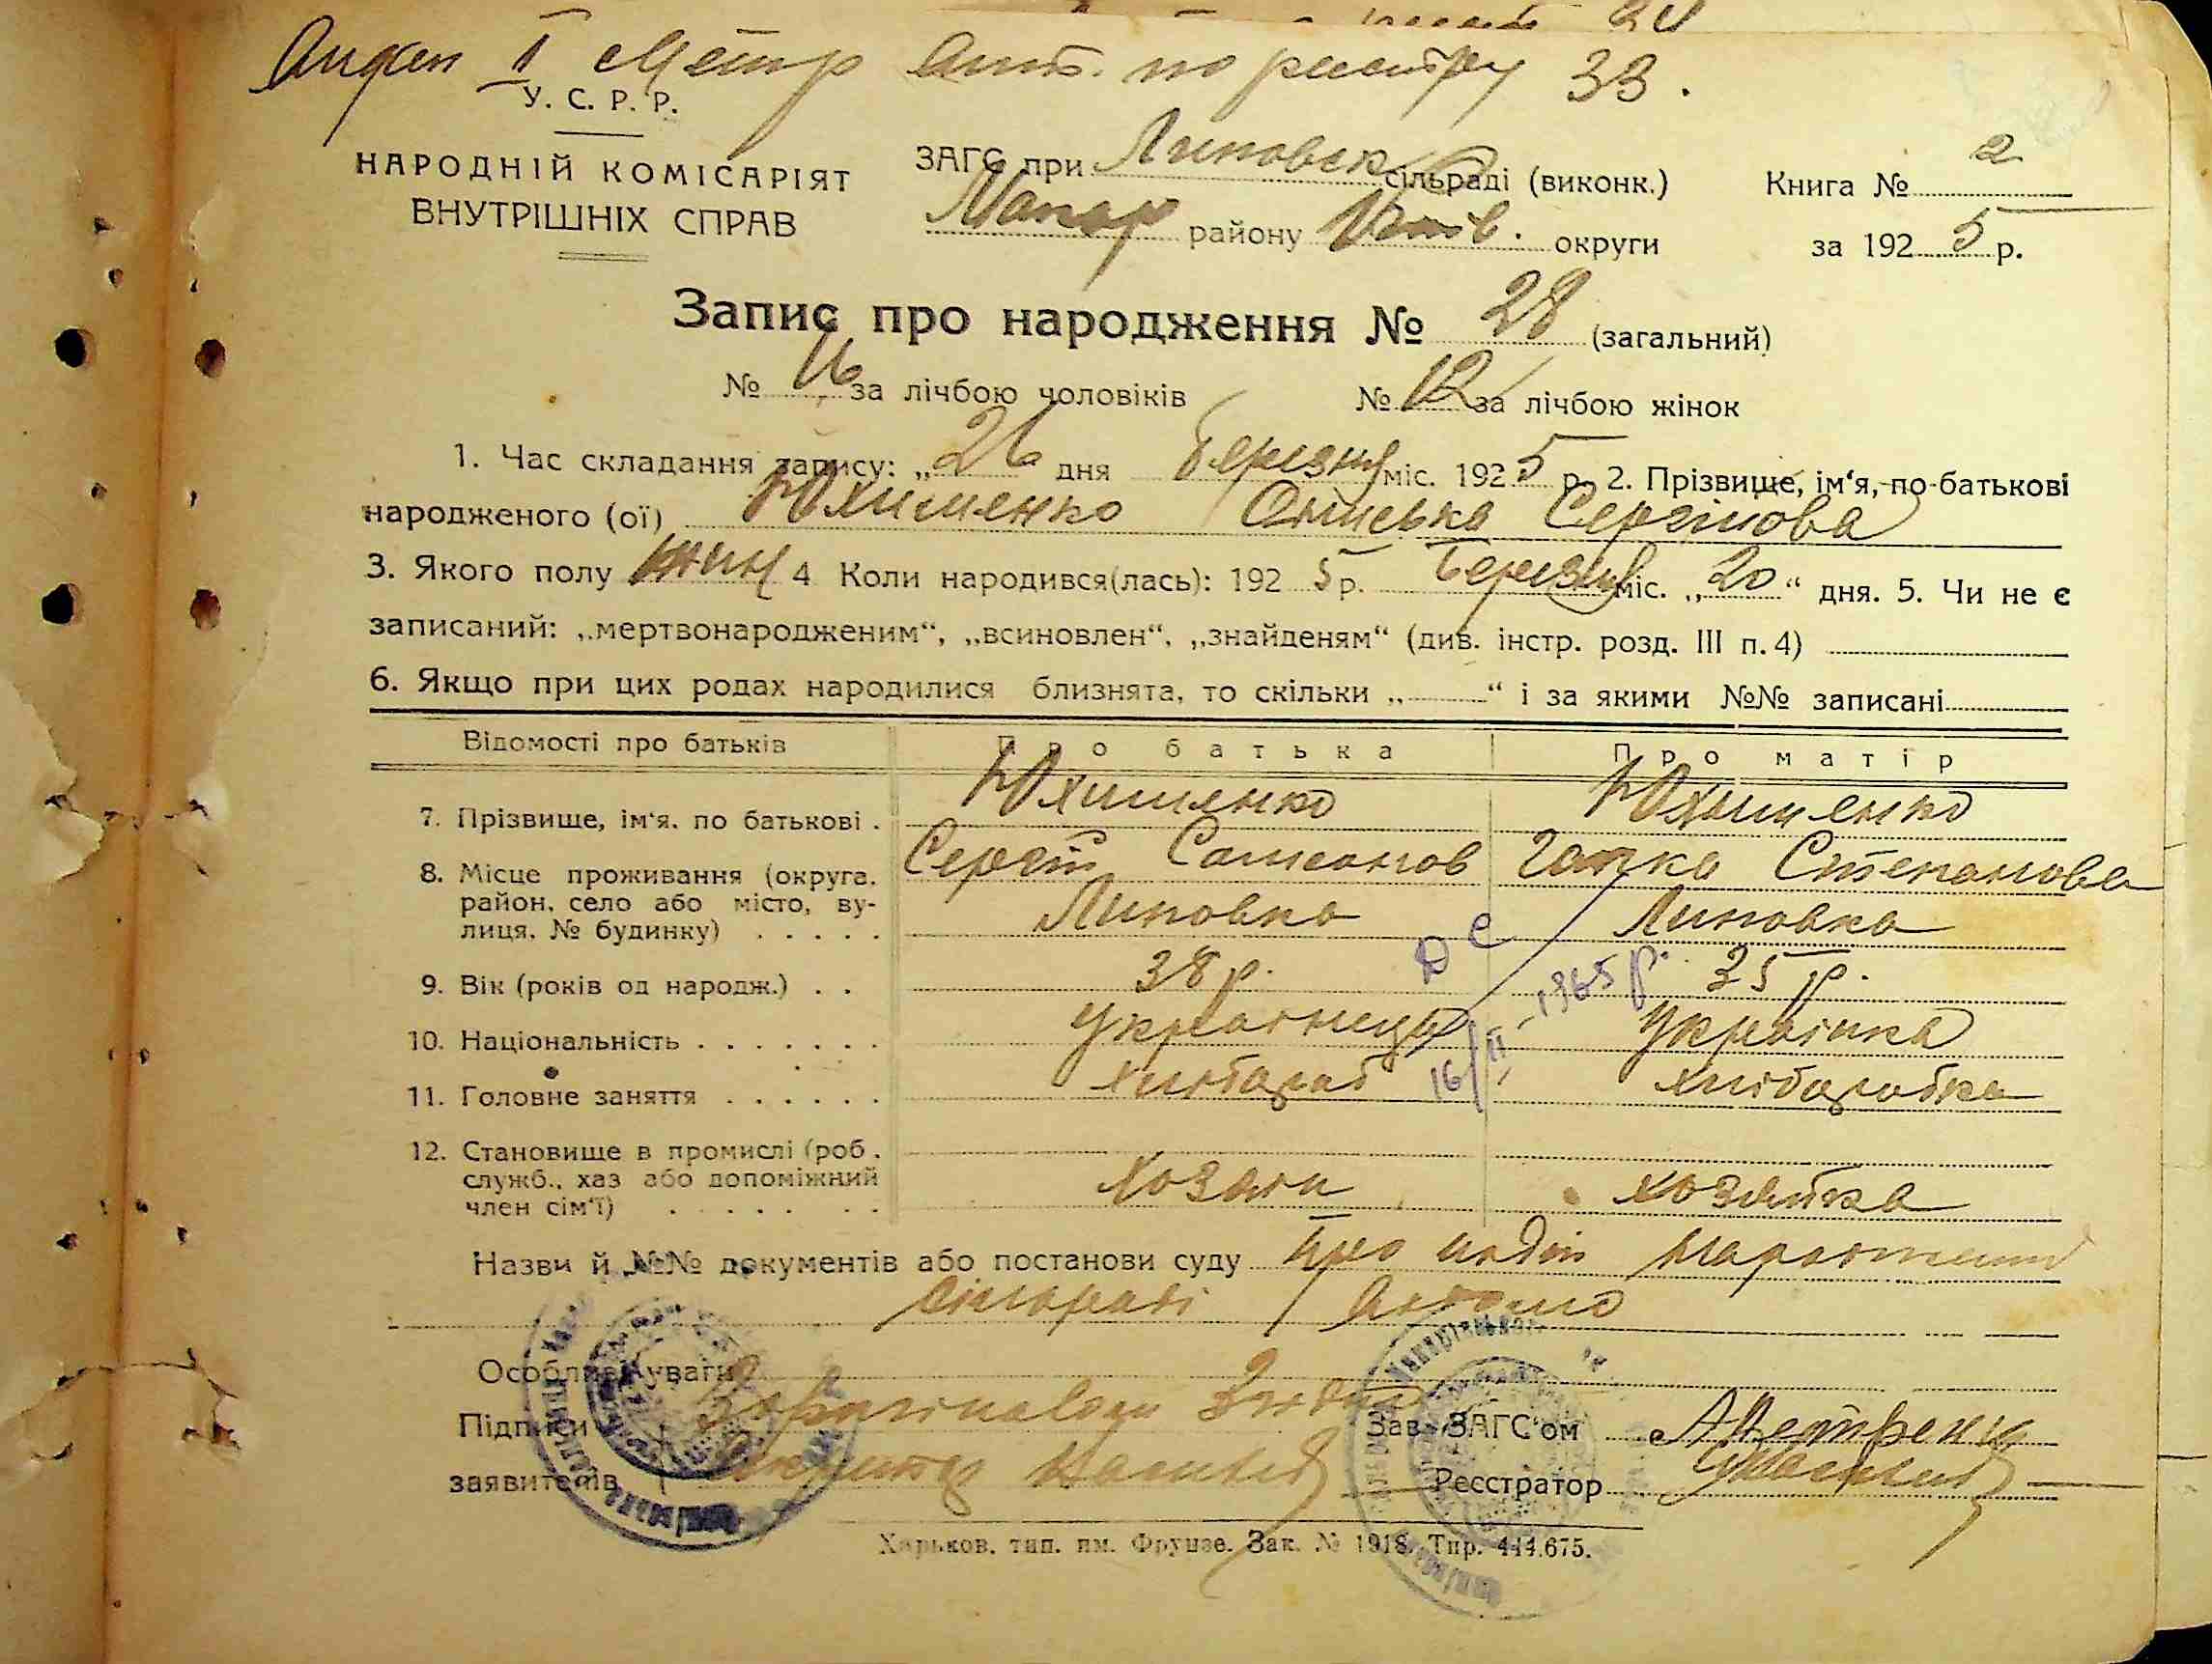 II по реєстру 33.
У. С. Р. Р.
НАРОДНІЙ КОМІСАРІЯТ
ВНУТРІШНІХ СПРАВ
ЗАГС при Липовск сільраді (виконк.)
Макар району Київ. округи
Книга № 2
за 1925 р.
Запис про народження № 28 (загальний)
№ 16 за лічбою чоловіків № 12 за лічбою жінок
1. Час складання запису: „26 дня березня міс. 1925 р. 2. Прізвище, ім‘я, по-батькові
народженого (ої) Юхименко Сергійова
3. Якого полу жин 4 Коли народився(лась): 1925 р. березня міс. „20“ дня. 5. Чи не є
записаний: „мертвонародженим“, „всиновлен“, „знайденям“ (див. інстр. розд. III п. 4)
6. Якщо при цих родах народилися близнята, то скільки „ “ і за якими №№ записані
Відомості про батьків Про батька Про матір
7. Прізвище, ім‘я. по батькові . Юхименко Юхименко
Сергій Самсонов Гапка Степанова
8. Місце проживання (округа, район, село або місто, вулиця, № будинку) . . . . . Липовка Липовка
9. Вік (років од народж.) . . 38 р. 35 р.
16/II-1965 р.
10. Національність . . . . . . . Українець Українка
11. Головне заняття . . . . . . хлібороб хліборобка
12. Становище в промислі (роб. служб., хаз або допоміжний член сім‘ї) . . . . . . . хозяин хозяйка
Назви й №№ документів або постанови суду
Особливі уваги
Підписи
заявителів
Зав. ЗАГС‘ом
Реєстратор
Харьков, тип. им. Фрунзе. Зак. № 1918. Тир. 444.675.